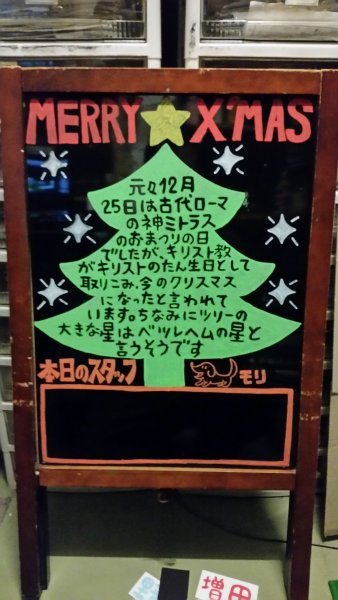 MERRY X'MAS
元々12月
25日は古代ローマ
の神ミトラス
のおまつりの日
でしたが、キリスト教
がキリストのたん生日として
取りこみ、今のクリスマス
になったと言われて
います。ちなみにツリーの
大きな星はベツレヘムの星と
言うそうです
本日のスタッフ
モリ
増田